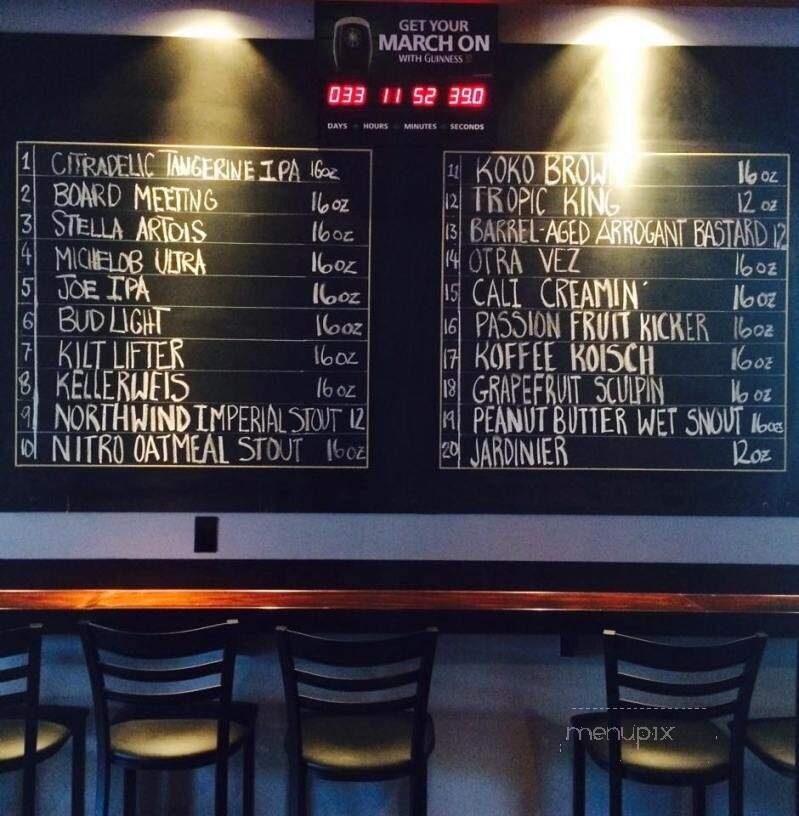 GET YOUR
MARCH ON
WITH GUINNESS
033 11 52 39.0
DAYS HOURS MINUTES SECONDS
1 CITRADELIC TANGERINE IPA 16oz
2 BOARD MEETING 16oz
3 STELLA ARTOIS 16oz
4 MICHELOB ULTRA 16oz
5 JOE IPA 16oz
6 BUD LIGHT 16oz
7 KILT LIFTER 16oz
8 KELLERWEIS 16oz
9 NORTHWIND IMPERIAL STOUT 12
10 NITRO OATMEAL STOUT 16oz
11 KOKO BROWN 16oz
12 TROPIC KING 12oz
13 BARREL-AGED ARROGANT BASTARD 12
14 OTRA VEZ 16oz
15 CALI CREAMIN' 16oz
16 PASSION FRUIT KICKER 16oz
17 KOFFEE KOISCH 16oz
18 GRAPEFRUIT SCULPIN 16oz
19 PEANUT BUTTER WET SNOUT 16oz
20 JARDINIER 12oz
menupix